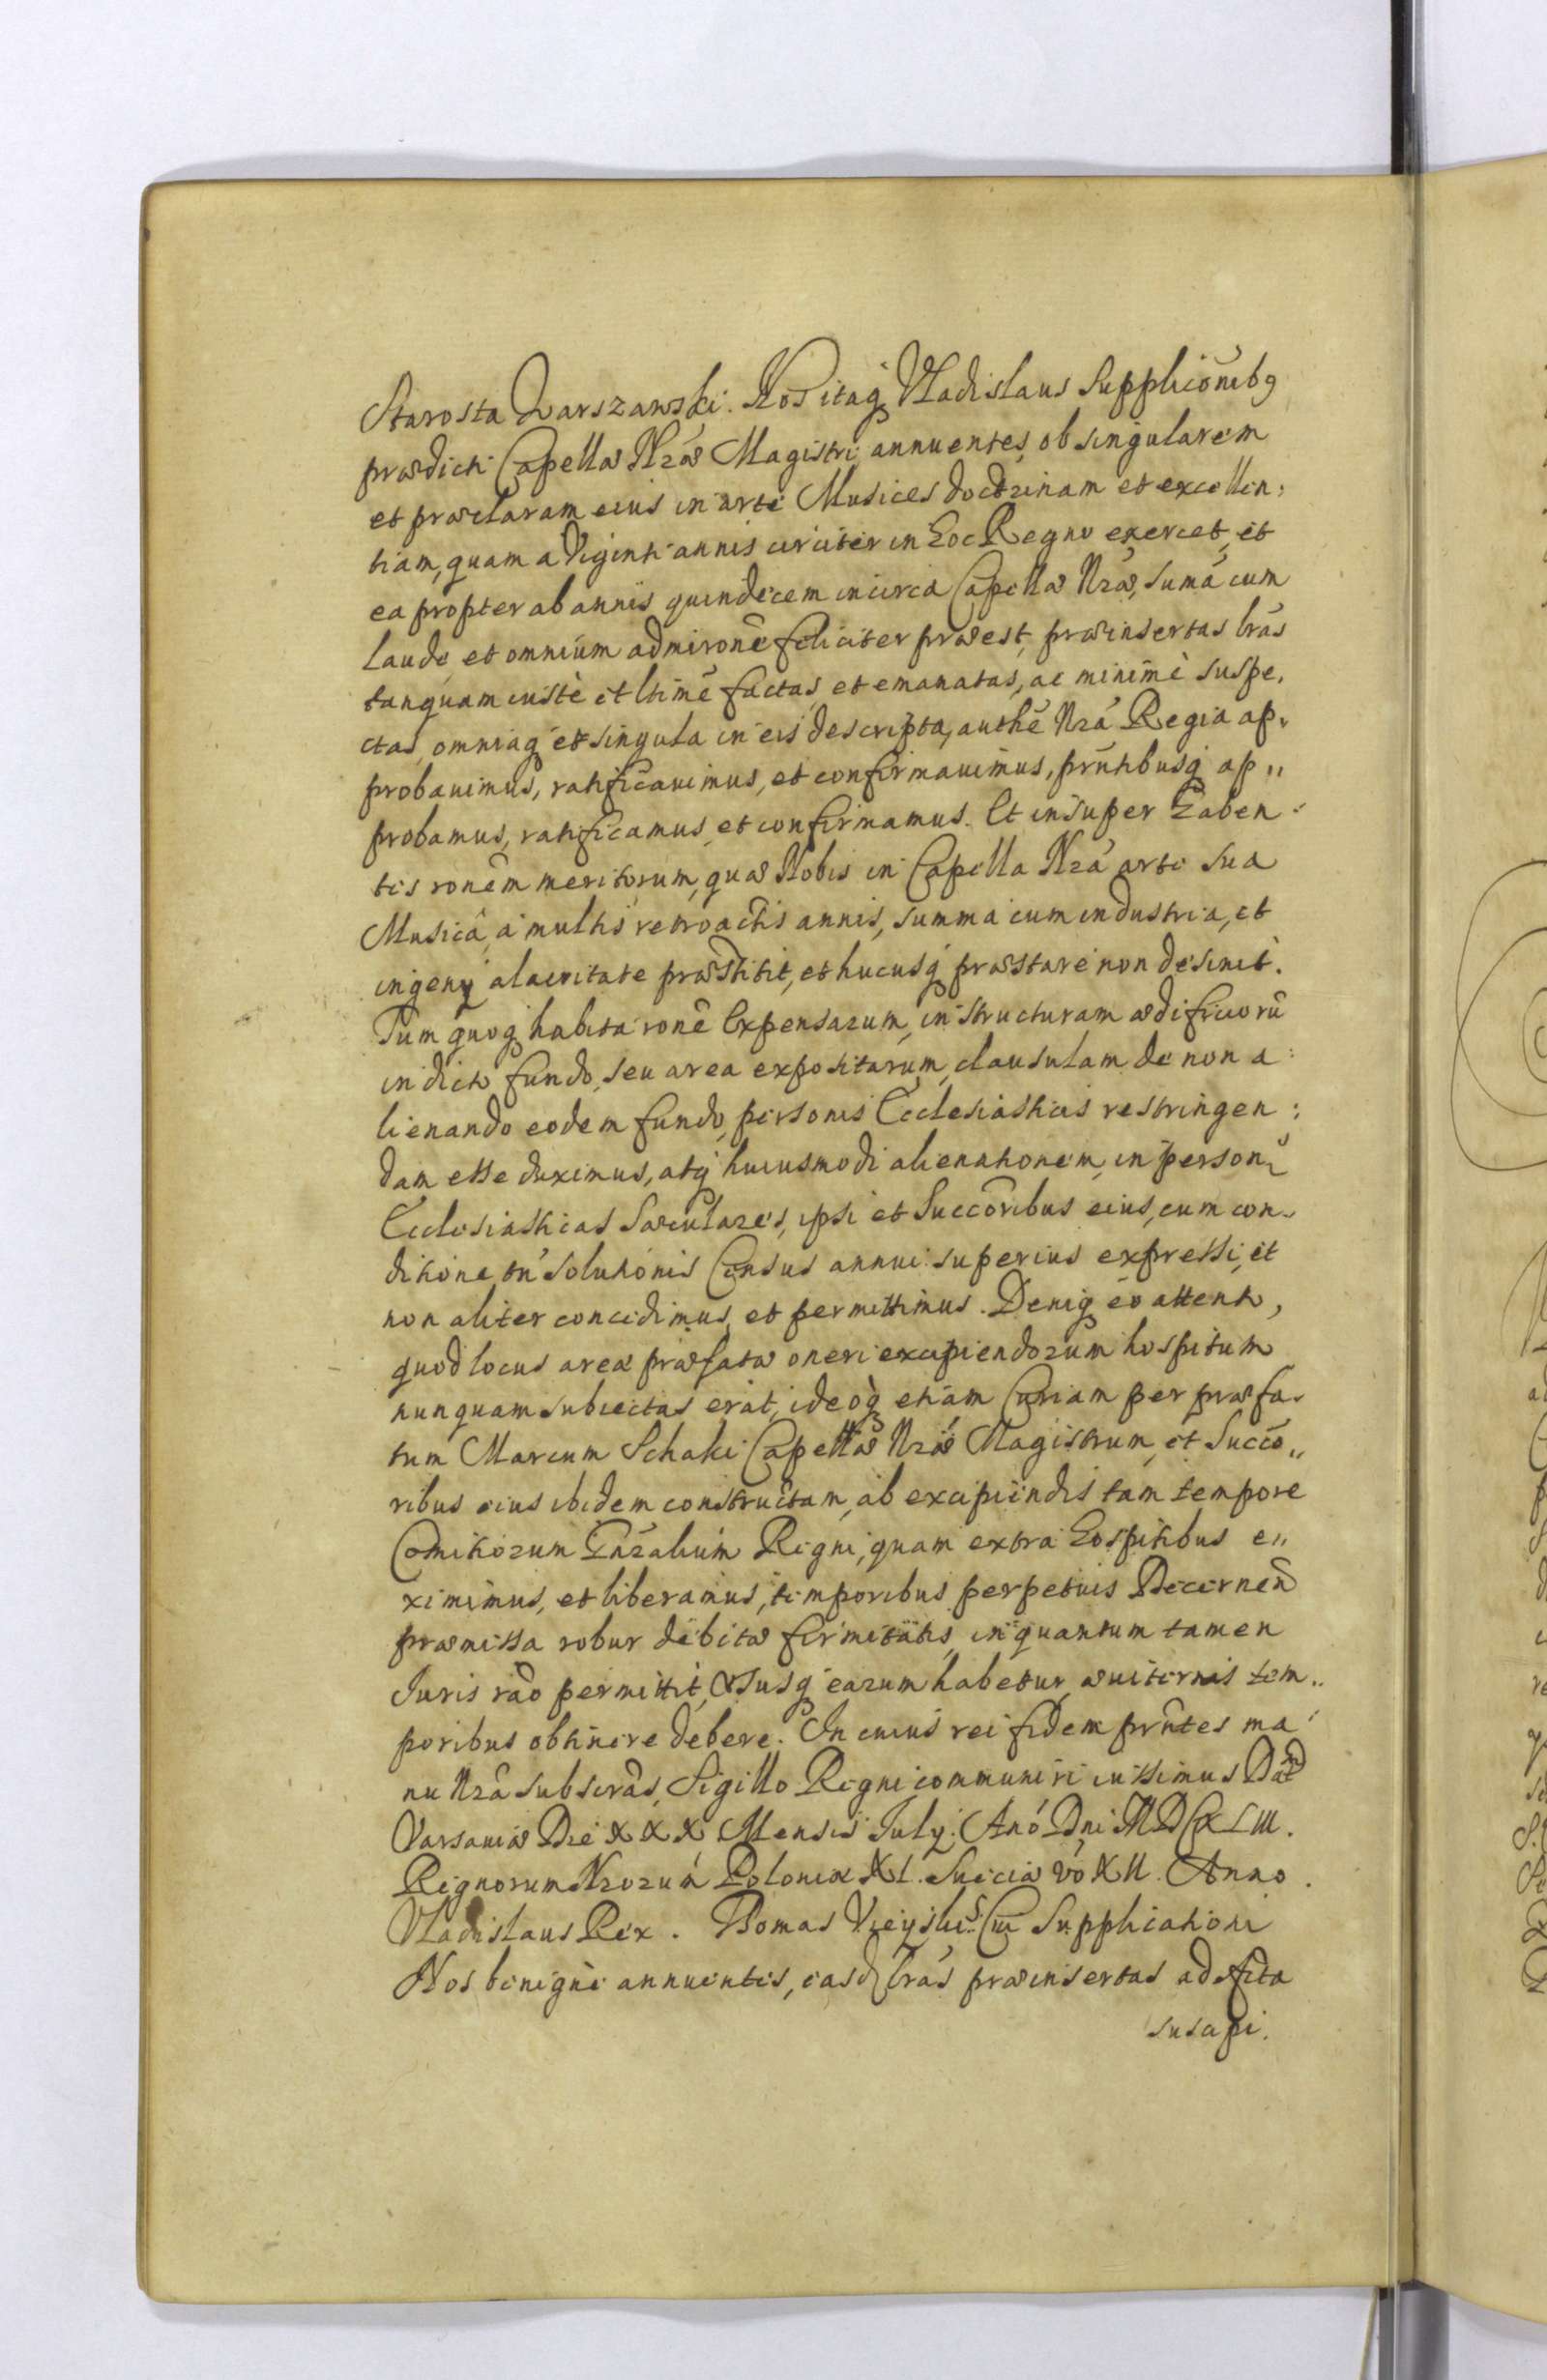 Starosta Warszawski. Nos itaq Vladislaus Supplicõnibq
prædicti Capellæ Nræ Magistri annuentes, ob singularem
et præclaram eius in arte Musices doctrinam et excellen:
tiam, quam a Viginti annis circiter in hoc Regno exercet, et
ea propter ab annis quindecem in circa Capellæ Nræ, sumá cum
laude, et omnium admironẽ feliciter præest, præinsertas lrás
tanquam iustè et ltimẽ factas, et emanatas, ac minimè suspe,
ctas, omniaq et singula in eis descripta, authẽ Nrá Regia ap,
probauimus, ratificauimus, et confirmauimus, prñtibusq ap„
probamus, ratificamus, et confirmamus. Et insuper haben-
tes ronẽm meritorum, quæ Nobis in Capella Nrá arte sua
Musicâ, á multis retroactis annis, summa cum industria, et
ingenÿ alacritate præstitit, et hucusq præstare non desinit.
Tum quoq habita ronẽ Expensarum, in structuram ædificiorũ
in dicto fundo, seu area expositarum, clausulam de non a:
lienando eodem fundo, personis Ecclesiasticis restringen:
dam esse duximus, atq huiusmodi alienationem, in personˢ
Ecclesiasticas Sæculares, ipsi et Succõribus eius, cum con-
ditione, tñ solutionis Census annui superius expressi, et
non aliter concedimus, et permittimus. Deniq eo attento,
quod locus areæ præfatæ oneri excipiendorum hospitum
nunquam subiectas erat, ideoq etiam Curiam per præfa-
tum Marcum Schaki Capellæ Nræ Magistrum, et Succõ„
ribus eius ibidem constructam, ab excipiendis tam tempore
Comitiorum Gnralium Regni, quam extra hospitibus e„
ximimus, et liberamus, temporibus perpetuis Decernẽn
præmissa robur debitæ firmitatis, in quantum tamen
Iuris raõ permittit, Vsusq earum habetur, æuiternis tem„
poribus obtinere debere. In cuius rei fidem prñtes ma
nu Nrâ subscrâs, Sigillo Regni communiri iussimus Dat
Varsauiæ Die XXX Mensis Iulÿ Anõ Dni MDCXLIII.
Regnorum Nrorum Poloniæ XI. Sueciæ võ XII. Anno.
Vladislaus Rex. Thomas Vieyski S. Cui Supplicationi
Nos benignè annuentes, easd lrás præinsertas ad ficta
suscipi.